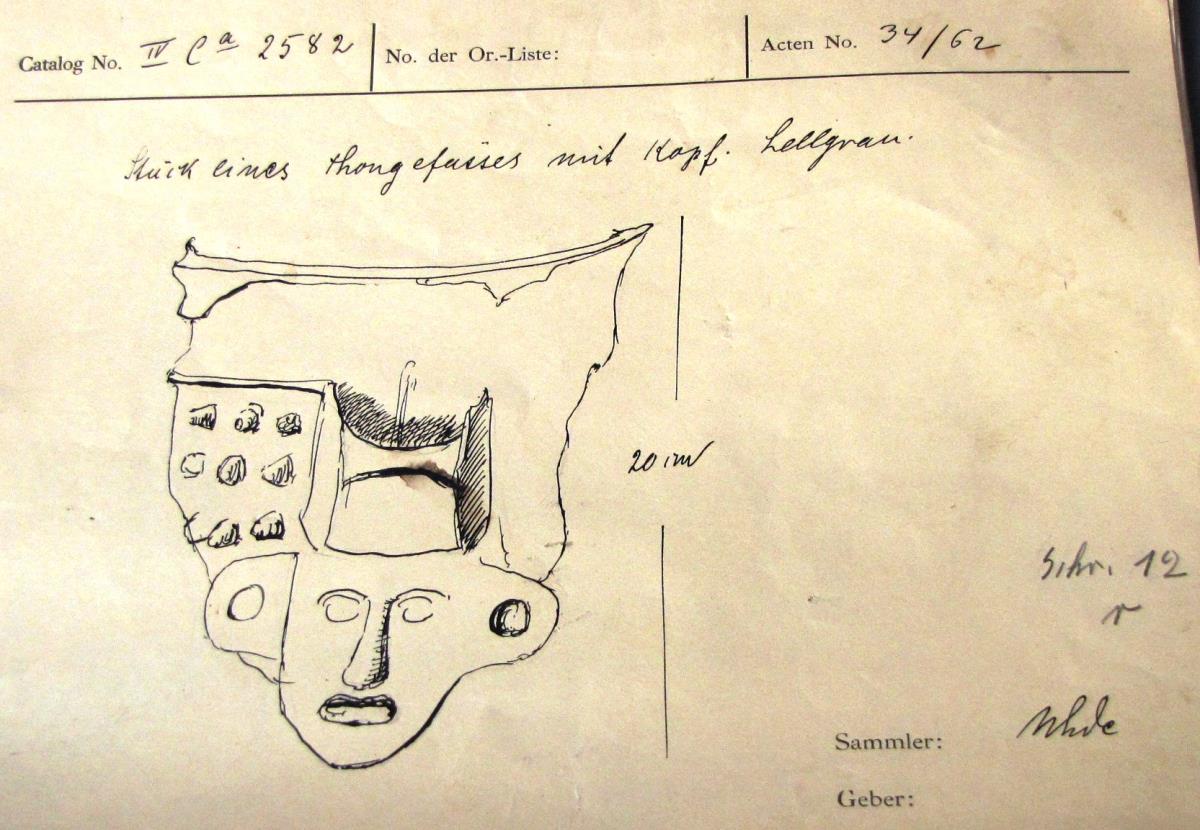 Catalog No. IV Ca 2582 No. der Or.-Liste: Acten No. 34/62
Stück eines Thongefässes mit Kopf. hellgrau.
20 cm
Schr. 12
r
Sammler: Uhde
Geber: